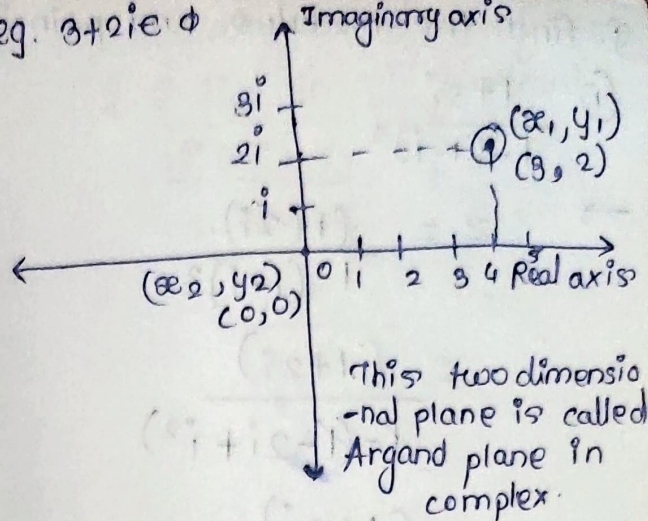 eg. 3+2i ∈ ¢
Imaginary axis
3i
2i
i
(x₁, y₁)
(3, 2)
0 1 2 3 4 5 Real axis
(x₂, y₂)
(0, 0)
This two dimensio
-nal plane is called
Argand plane in
complex.